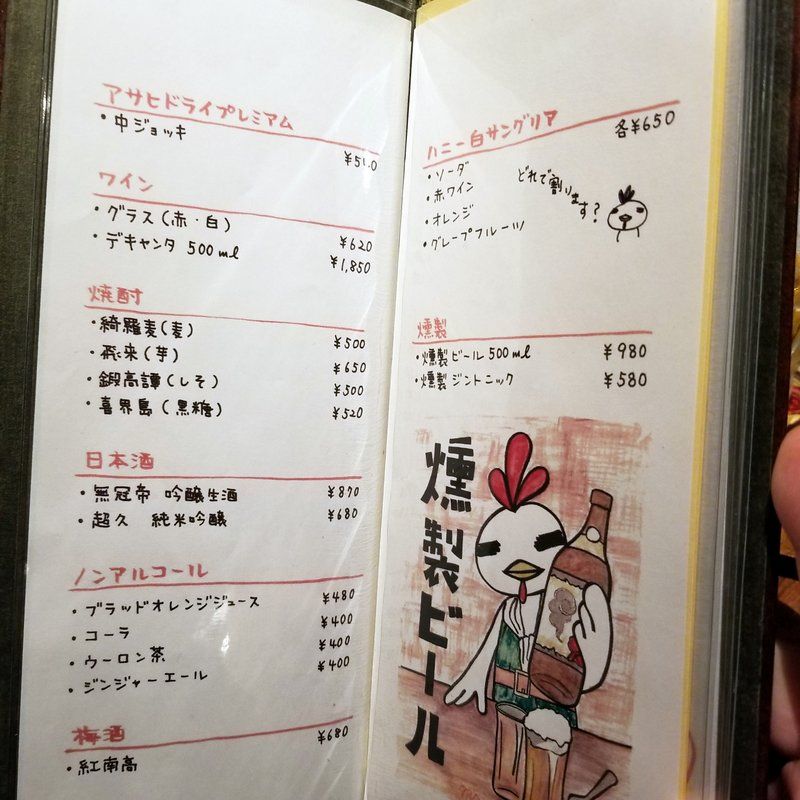 アサヒドライプレミアム
・中ジョッキ
ワイン
・グラス(赤・白) ¥620
・デキャンタ 500ml ¥1,850
焼酎
・綺羅麦(麦) ¥500
・飛来(芋) ¥650
・鍛高譚(しそ) ¥500
・喜界島(黒糖) ¥520
日本酒
・無冠帝 吟醸生酒 ¥870
・超久 純米吟醸 ¥680
ノンアルコール
・ブラッドオレンジジュース ¥480
・コーラ ¥400
・ウーロン茶 ¥400
・ジンジャーエール ¥400
梅酒 ¥680
・紅南高
ハニー白サングリア 各¥650
・ソーダ
・赤ワイン
・オレンジ
・グレープフルーツ
どれで割ります?
燻製
・燻製ビール 500ml ¥980
・燻製ジントニック ¥580
燻製ビール